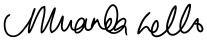 Miranda Wells